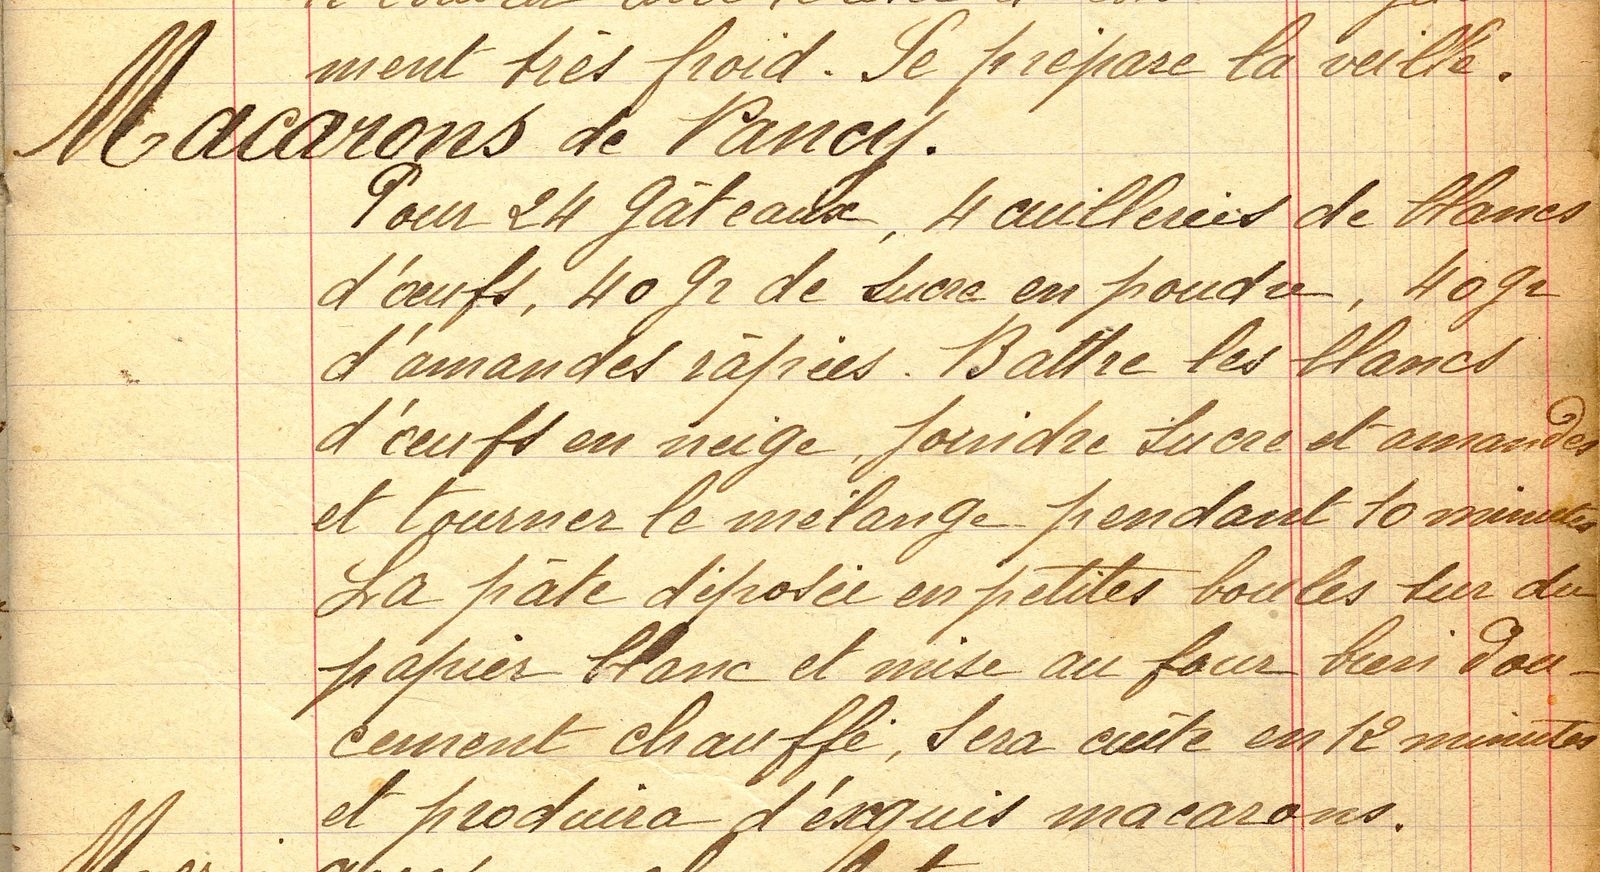 ment très froid. Se prépare la veille.
Macarons de Nancy.
Pour 24 gâteaux, 4 cuillerées de blancs
d'œufs, 40 gr de sucre en poudre, 40 gr
d'amandes râpées. Battre les blancs
d'œufs en neige, joindre sucre et amandes
et tourner le mélange pendant 10 minutes
La pâte déposée en petites boules sur du
papier blanc et mise au four bien dou-
cement chauffé, sera cuite en 12 minutes
et produira d'éxquis macarons.